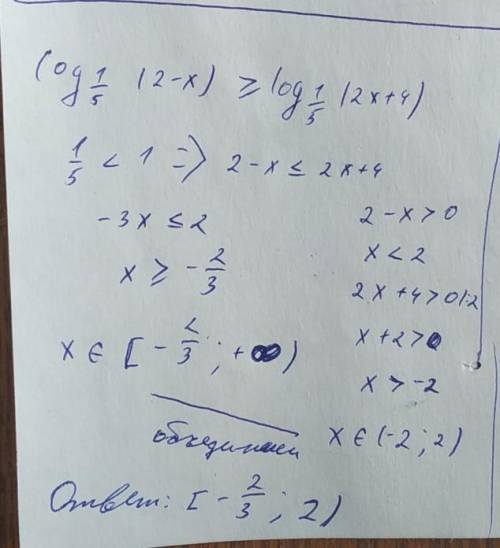 log 1/5 (2-x) ≥ log 1/5 (2x+4)
1/5 < 1 => 2-x ≤ 2x+4
-3x ≤ 2
x ≥ -2/3
x ∈ [-2/3; +∞)
2-x>0
x<2
2x+4>0 |:2
x+2>0
x>-2
x ∈ (-2; 2)
объединяем
Ответ: [-2/3; 2)